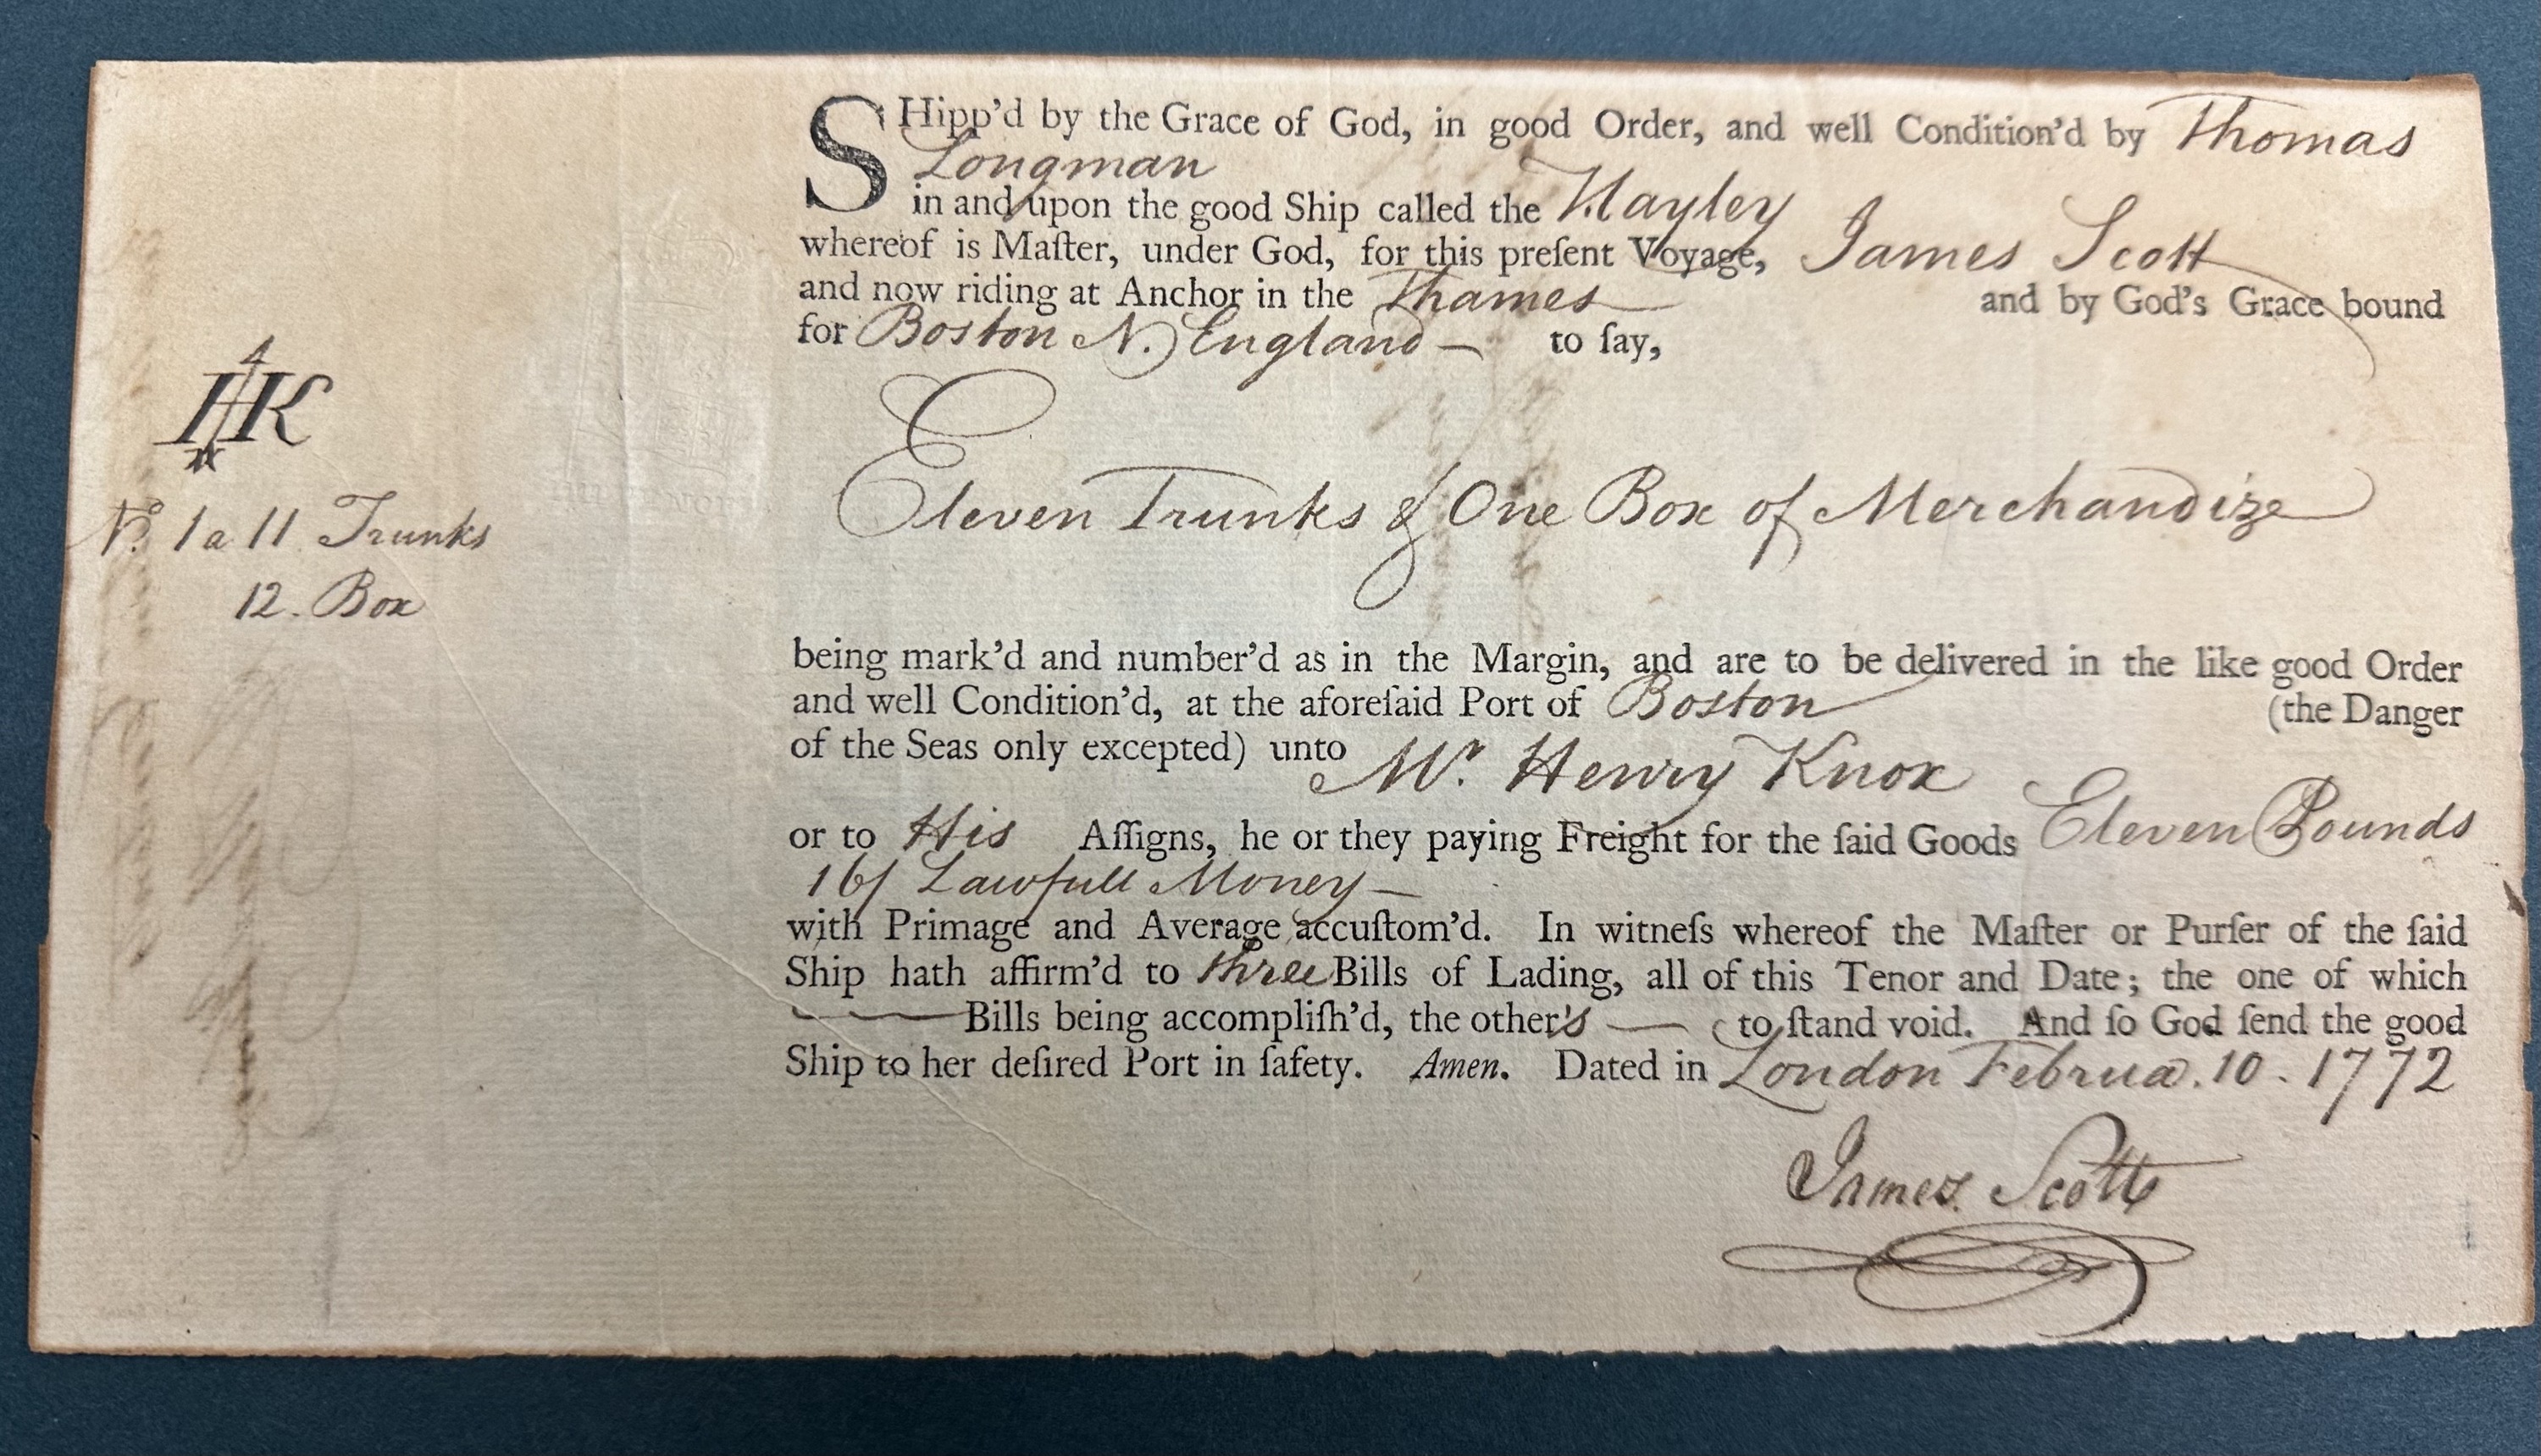 SHipp'd by the Grace of God, in good Order, and well Condition'd by Thomas
Longman
in and upon the good Ship called the Hayley
whereof is Maſter, under God, for this preſent Voyage, James Scott
and now riding at Anchor in the Thames and by God's Grace bound
for Boston N. England — to ſay,
HK
Eleven Trunks & One Box of Merchandize
No. 1 a 11 Trunks
12. Box
being mark'd and number'd as in the Margin, and are to be delivered in the like good Order
and well Condition'd, at the aforeſaid Port of Boston (the Danger
of the Seas only excepted) unto Mr. Henry Knox
or to His Aſſigns, he or they paying Freight for the ſaid Goods Eleven Pounds
16/ Lawfull Money —
with Primage and Average accuſtom'd. In witneſs whereof the Maſter or Purſer of the ſaid
Ship hath affirm'd to three Bills of Lading, all of this Tenor and Date; the one of which
Bills being accompliſh'd, the other's — to ſtand void. And ſo God ſend the good
Ship to her deſired Port in ſafety. Amen. Dated in London Februa. 10. 1772
James Scott